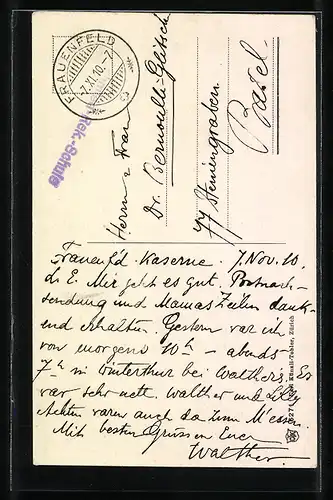 FRAUENFELD
-7.XI.10.-7
Rek.-Schule
Herrn & Frau
Dr. Bernoulli-Gätsch
77 Steinengraben
Basel.
Frauenf'd. Kaserne. 7. Nov. 10.
L. E. Mir geht es gut. Postnach-
sendung und Mamas Zeilen dank-
end erhalten. Gestern war ich
von morgens 10 h - abends
7 h in Winterthur bei Walthers. Es
war sehr nett. Walther und Lilly
waren auch da zum M'essen.
Mit besten Grüssen Euer
Walther.
Künzli-Tobler, Zürich